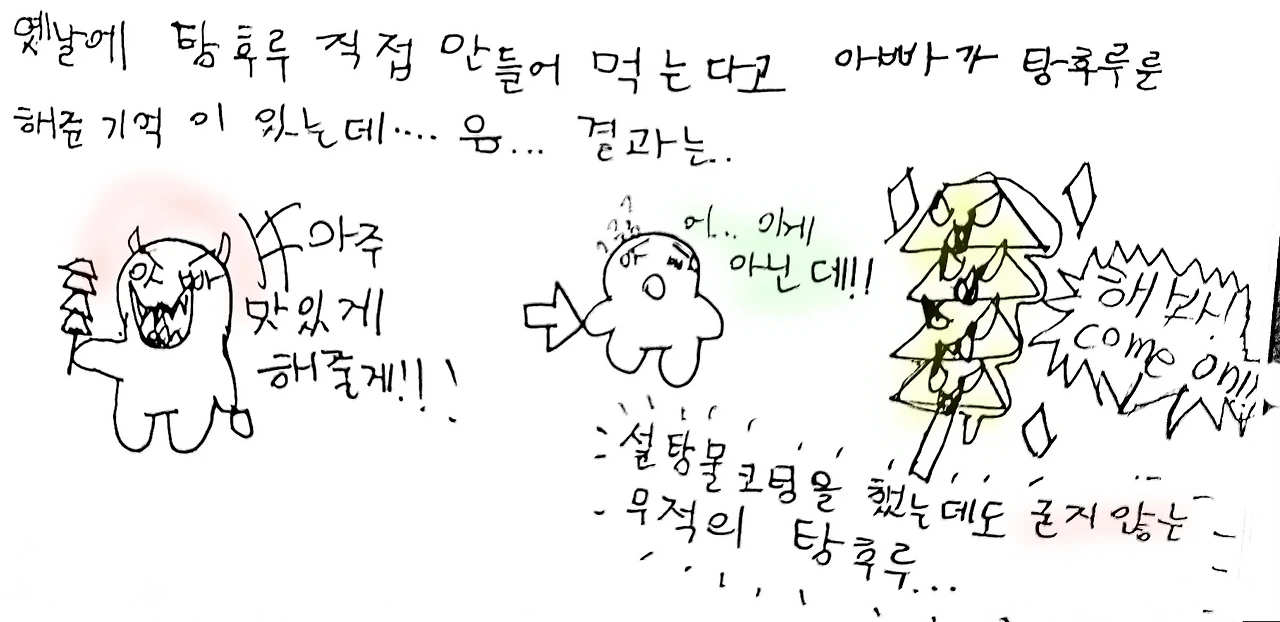 옛날에 탕후루 직접 만들어 먹는다고 아빠가 탕후루를
해준 기억이 있는데.... 음... 결과는..
아빠
아주
맛있게
해줄게!!!
아빠
어.. 이게
아닌데!!
해봐!
come on!!
설탕물코팅을 했는데도 굳지않는
무적의 탕후루...